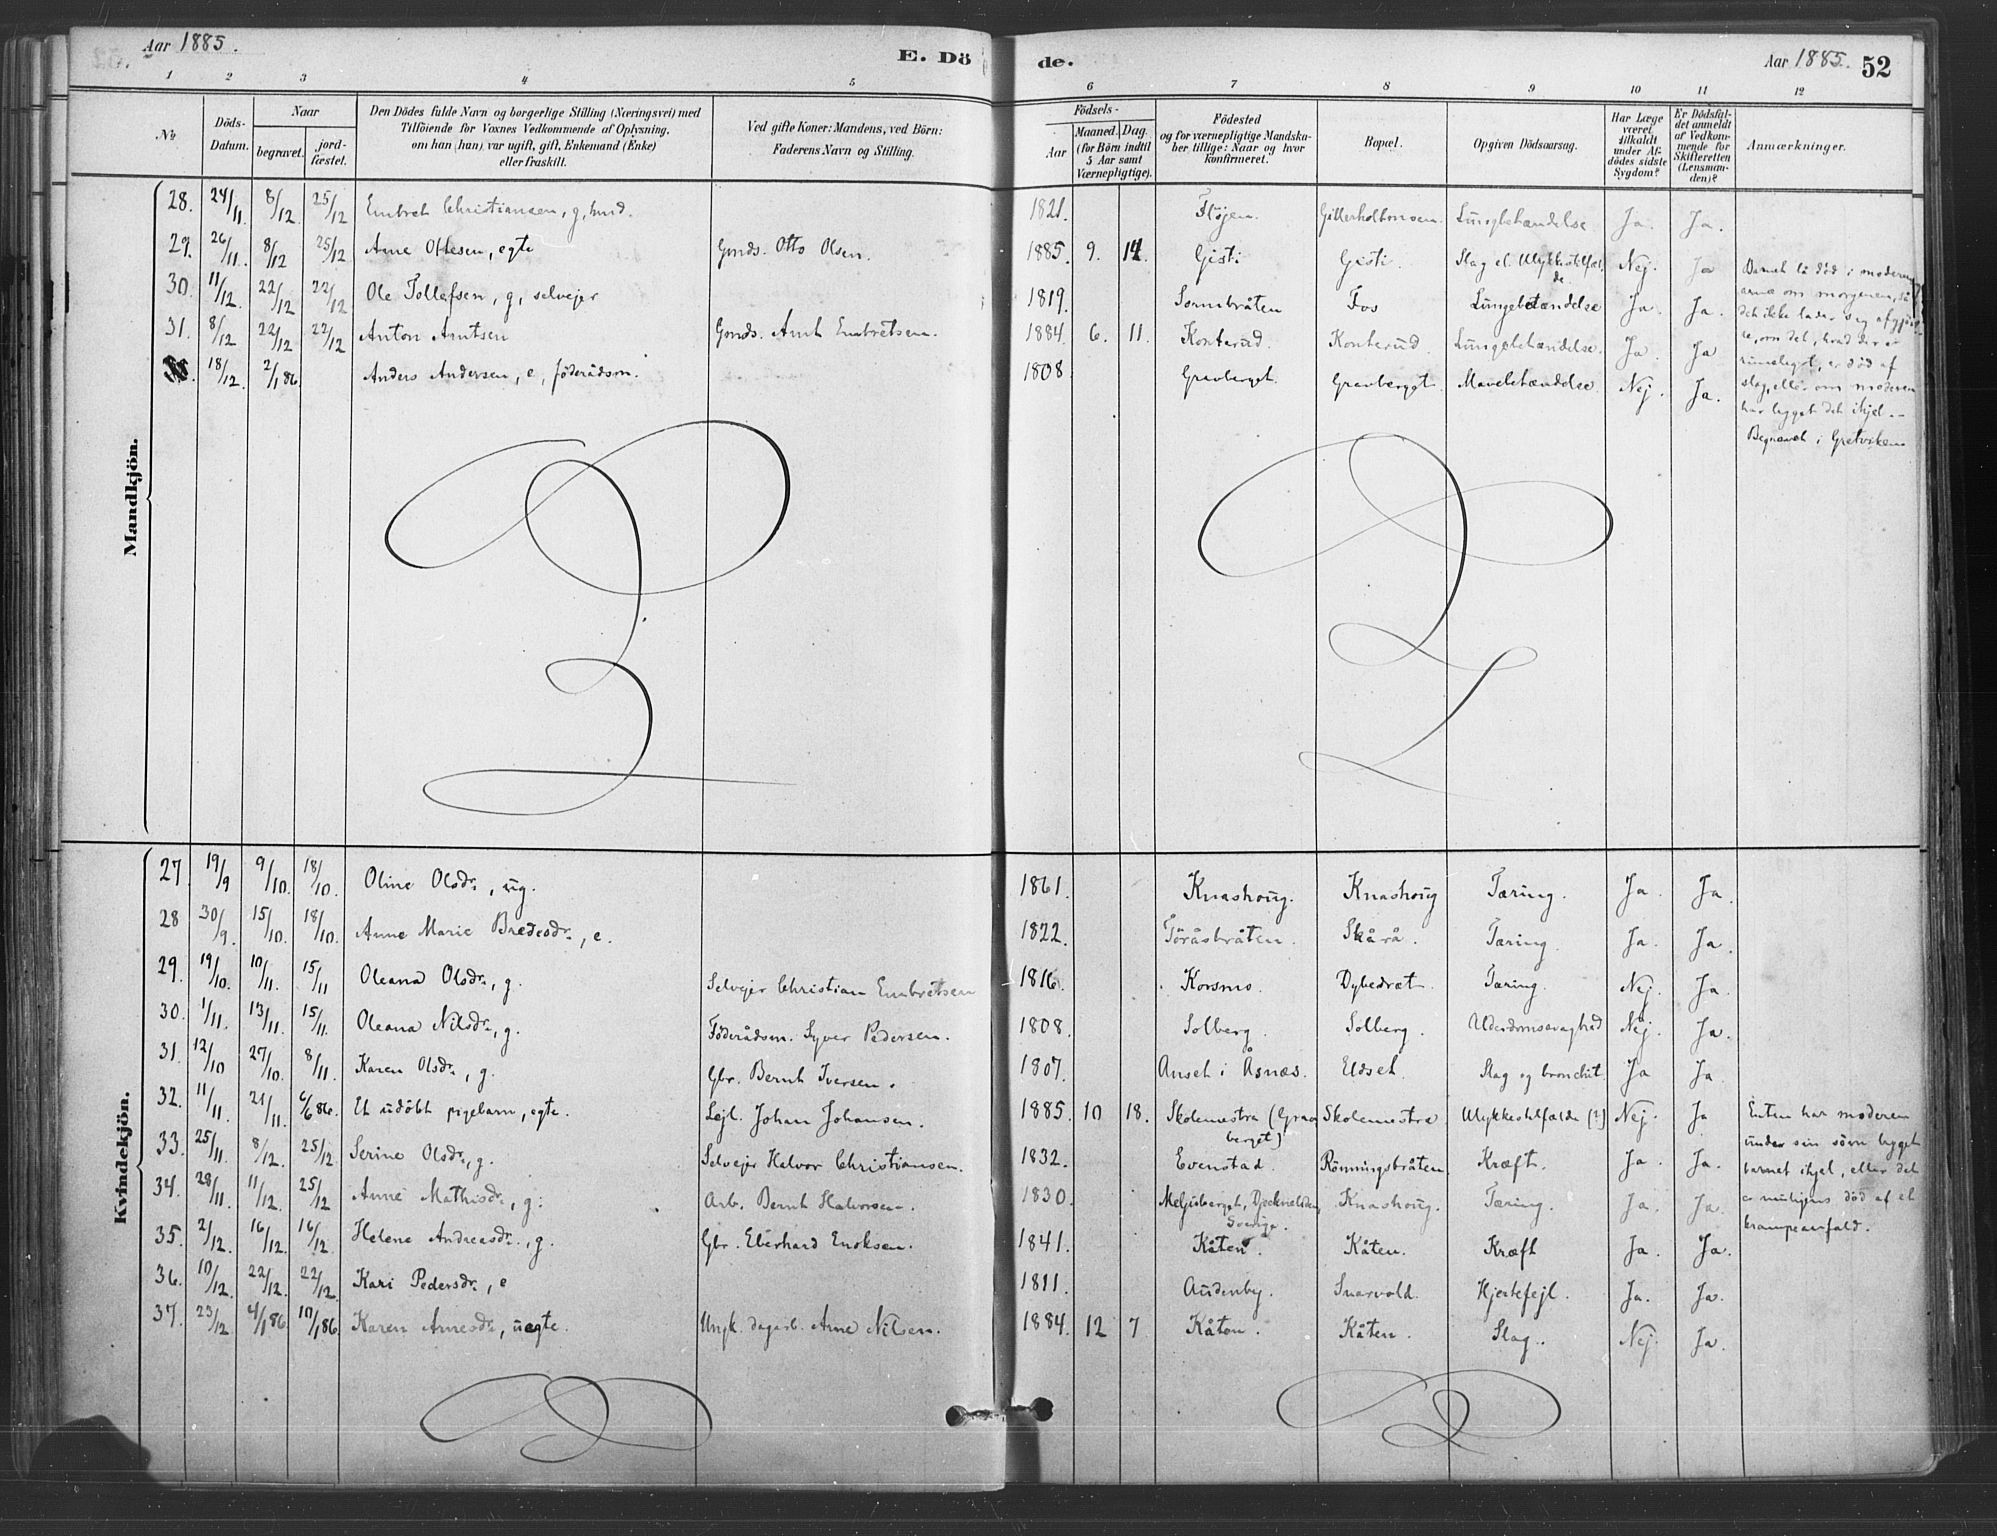 Aar 1885.
E. Dö
de.
Aar 1885. 52
1 2 3 4 5 6 7 8 9 10 11 12
No
Döds-
Datum.
Naar
begravet.
jord-
fæstet.
Den Dödes fulde Navn og borgerlige Stilling (Næringsvei) med
Tilföiende for Voxnes Vedkommende af Oplysning,
om han (hun) var ugift, gift, Enkemand (Enke)
eller fraskilt.
Ved gifte Koner: Mandens, ved Börn:
Faderens Navn og Stilling.
Födsels-
Aar
Maaned. Dag.
(for Börn indtil
5 Aar samt
Værnepligtige).
Födested
og for værnepligtige Mandska-
ber tillige: Naar og hvor
konfirmeret.
Bopæl.
Opgiven Dödsaarsag.
Har Læge
været
tilkaldt
under Af-
dödes sidste
Sygdom?
Er Dödsfal-
det anmeldt
af Vedkom-
mende for
Skifteretten
(Lensman-
den)?
Anmærkninger.
Mandkjön.
28. 24/11. 8/12. 25/12 Embret Christiansen, g, hmd. 1821. Fløjen. Lungebetændelse Ja. Ja.
29. 26/11. 8/12 25/12 Arne Ottesen, egte Gmds. Otto Olsen. 1885. 9. 14. Gisti Gisti. Slag el. Ulykkestilfæl-
de. Nej. Ja
30. 11/12. 22/12 22/12 Ole Tollefsen, g, selvejer 1819. Sormbråten Fos Lungebetændelse Ja. Ja.
31. 8/12 22/12 22/12 Anton Arntsen Gmds. Arnt Embretsen. 1884. 6. 11. Konterud. Konterud. Lungebetændelse. Ja. Ja
18/12. 2/1 86. Anders Andersen, e, föderådsm. 1808 Gravberget. Gravberget. Mavebetændelse. Nej. Ja.
Barnet lå död i moderens
arme om morgenen, så
det ikke lader sig afgjö-
re, om det, hvad der er
rimeligst, er död af
slag, eller om moderen
har ligget det ihjel.
Begravet i
Kvindekjön.
27. 19/9 9/10. 18/10. Oline Olsdr., ug. 1861. Knashoug. Knashoug Tæring. Ja. Ja.
28 30/9. 15/10. 18/10. Anne Marie Bredesdr., e. 1822. Töråsbråten. Skårå. Tæring. Ja. Ja.
29. 19/10. 10/11. 15/11 Oleana Olsdr., g. Selvejer Christian Embretsen 1816. Korsmo. Dybedræt. Tæring. Nej. Ja.
30. 1/11. 13/11. 15/11. Oleana Nilsdr., g. Föderådsm. Syver Pedersen. 1808. Solberg. Solberg. Alderdomssvaghed Nej. Ja.
31. 12/10 27/10. 8/11. Karen Olsdr., g. Gbr. Bernt Iversen. 1807. Anset i Åsnæs. Eldset. Slag og bronchit. Ja Ja.
32. 11/11. 21/11. 6/6 86. Et udöbt pigebarn, egte. Lejl. Johan Johansen. 1885. 10 18. Skolemestra (Grav-
berget) Skolemestra Ulykkestilfælde (?) Nej. Ja
33. 25/11. 8/12. 25/12 Serine Olsdr., g. Selvejer Halvor Christiansen. 1832. Evenstad. Rönningsbråten Kræft. Ja. Ja.
34. 28/11. 11/12. 25/12 Anne Mathisdr., g. Arb. Bernt Halvorsen. 1830. Sverige. Knashoug. Tæring. Ja. Ja.
35. 2/12. 16/12. 16/12. Helene Andreasdr., g. Gbr. Eberhard Enoksen. 1841. Kåten. Kåten. Kræft Ja. Ja.
36. 10/12. 22/12. 22/12. Kari Pedersdr., e 1811. Audenby. Snarvold. Hjertefejl. Ja. Ja.
37. 23/12 4/1 86. 10/1 86. Karen Arnesdr., uegte. Ungk. dagarb. Arne Nilsen. 1884. 12 7 Kåten. Kåten. Slag. Nej. Ja.
Enten har moderen
under sin sövn ligget
barnet ihjel, eller det
er muligens död af et
krampeanfald.